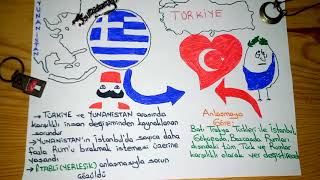 YUNANİSTAN
TÜRKİYE
→ TÜRKİYE ve YUNANİSTAN arasında
karşılıklı insan değişiminden kaynaklanan
sorundur
→ YUNANİSTAN'ın İstanbul'da sayıca daha
fazla Rum'u bırakmak istemesi üzerine
yaşandı
→ ETABLİ (YERLEŞİK) anlaşmasıyla sorun
çözüldü
Anlaşmaya
Göre;
Batı Trakya Türkleri ile İstanbul,
Gökçeada, Bozcaada Rumları
dışındaki tüm Türk ve Rumlar
karşılıklı olarak yer değiştirecek